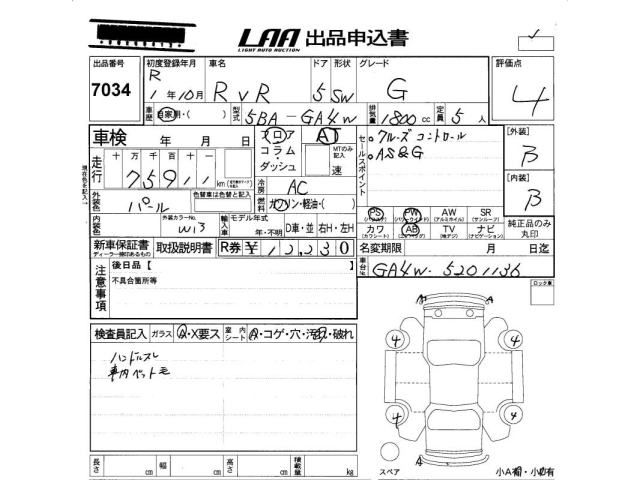 LAA 出品申込書
LIGHT AUTO AUCTION
出品番号 初度登録年月 車名 ドア 形状 グレード 評価点
7034 R 1年10月 RVR 5 SW G 4
車歴 自家用・( ) 型式 5BA-GA4W 排気量 1800 cc 定員 5人
車検 年 月 日 フロア AT
コラム・ダッシュ MTのみ記入 速
セールスポイント
・クルーズコントロール
・AS&G
[外装] B
[内装] B
現在色を記入
走行 十万 千 百 十
75911 km
冷房 AC
外装色 パール 色替車は色替と記入 燃料 ガソリン・軽油・( )
PS PW AW SR
(パワステ) (パワーウインド) (アルミホイル) (サンルーフ)
カワ AB TV ナビ
(レザーシート) (エアバッグ) (地デジ) (ナビゲーション)
純正品のみ丸印
内装色 外装カラーNo. W13 輸入車 モデル年式 年・不明 D車・並 右H・左H
新車保証書 取扱説明書 R券 ¥12,230 名変期限 月 日迄
ディーラー捺印あるもの
注意事項 後日品【
不具合箇所等
車台No. GA4W-5201136
ロック車
検査員記入 ガラス A・X要ス 室内シート A・コゲ・穴・汚れ・破れ
ハンドルスレ
車内ペット毛
A A
4 4
4 4
A
長さ cm 幅 cm 高さ cm 積載量 kg
スペア 小A有・小凹有